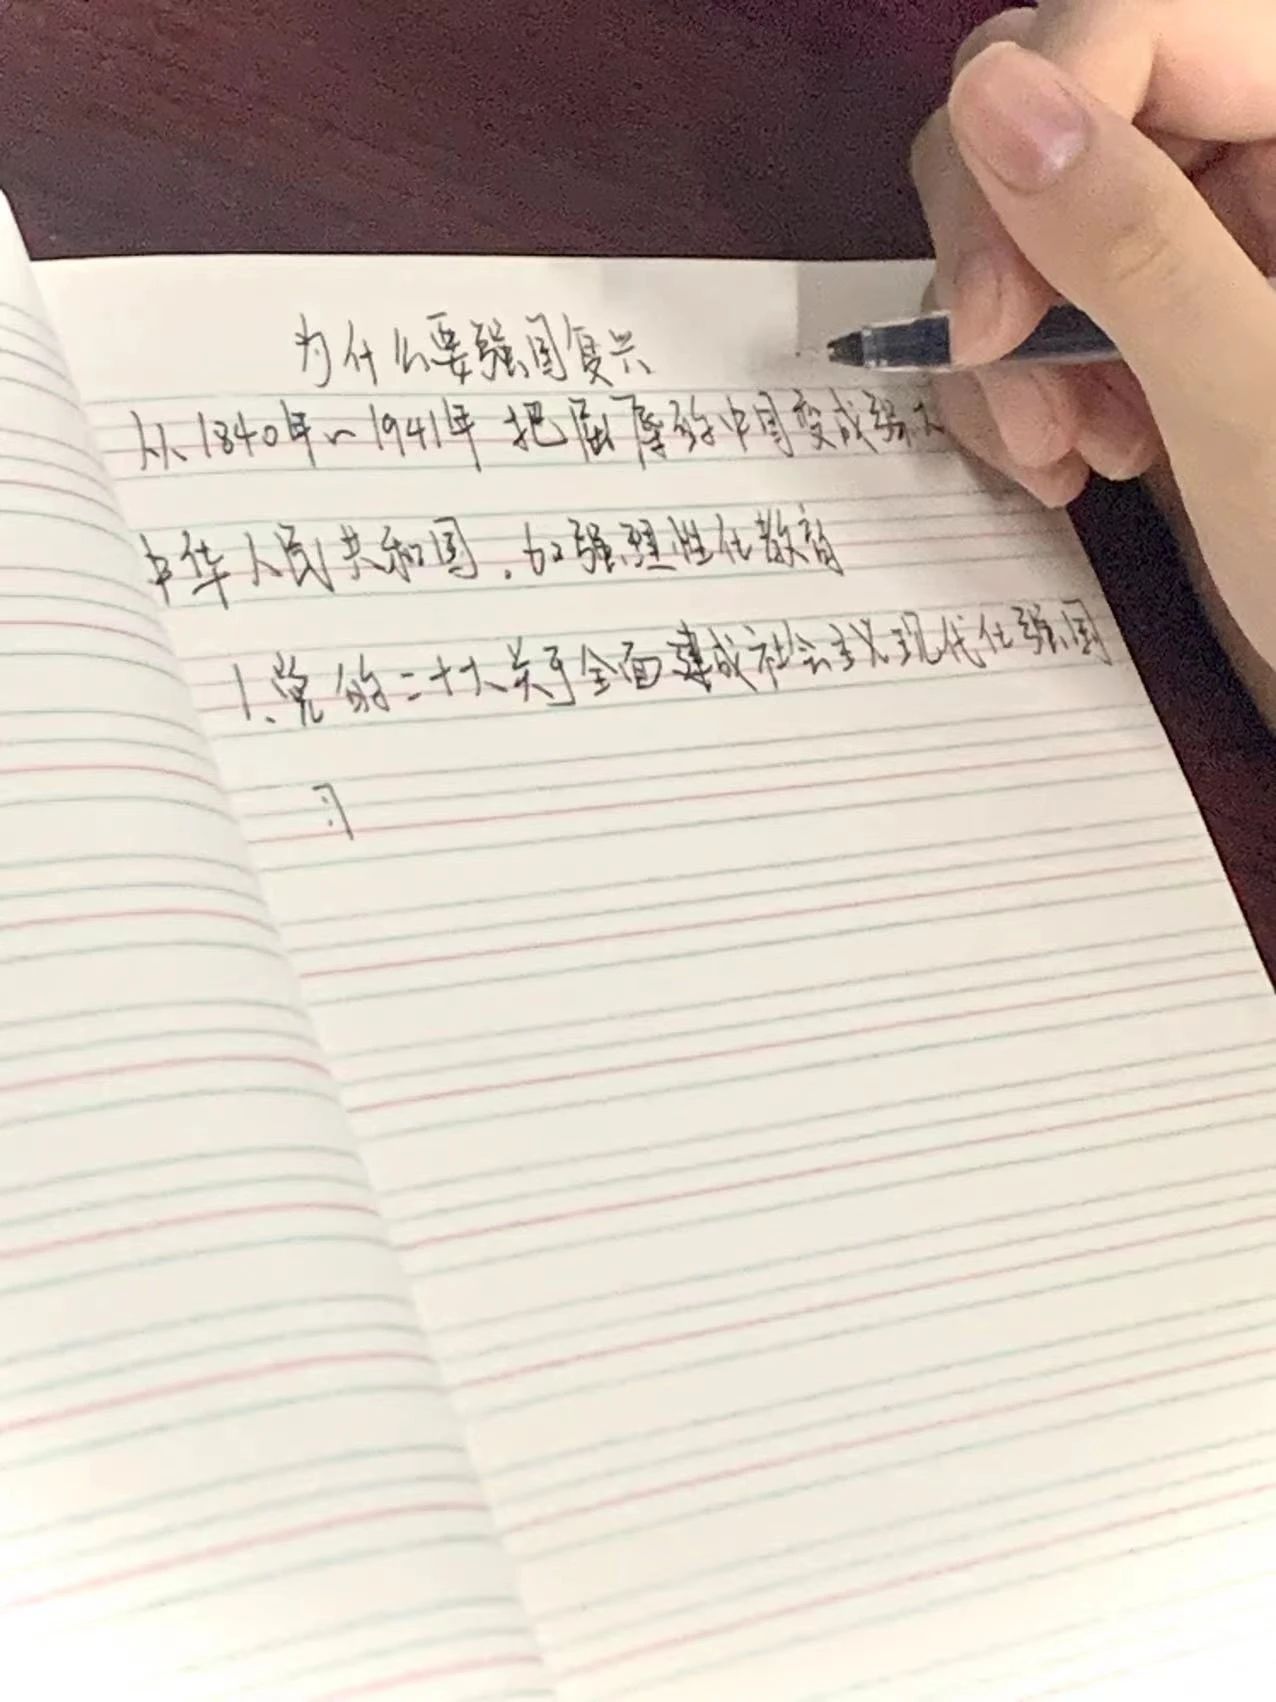 为什么要强国复兴
从1840年~1941年 把屈辱的中国变成强大
中华人民共和国.加强理性化教育
1、党的二十大关于全面建成社会主义现代化强国
习